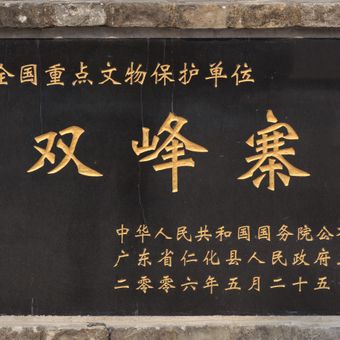 全国重点文物保护单位
双峰寨
中华人民共和国国务院公
广东省仁化县人民政府
二〇〇六年五月二十五